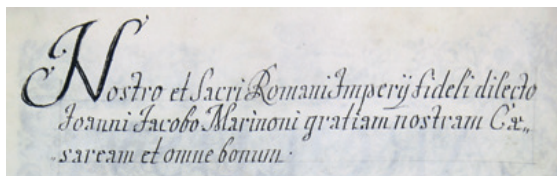 Nostro et Sacri Romani Imperÿ fideli dilecto
Joanni Jacobo Marinoni gratiam nostram Cæ„
saream et omne bonum·